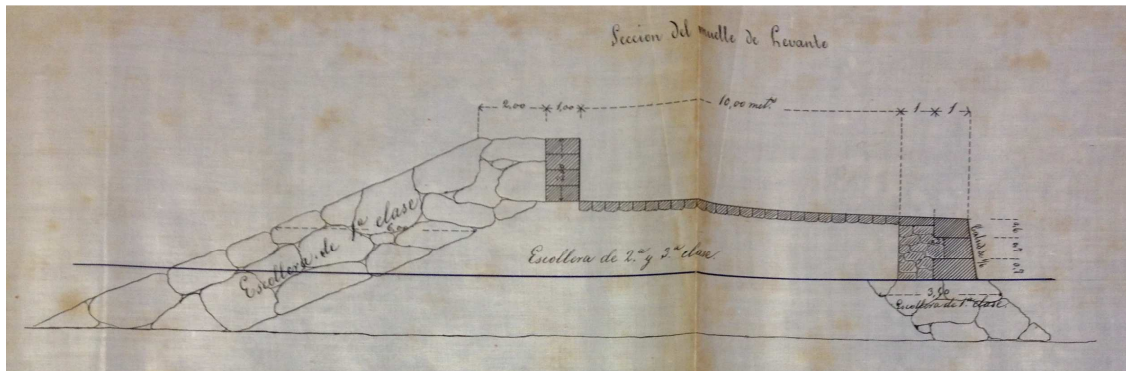 Seccion del muelle de Levante
2,00 1,00 10,00 met.s 1 1
Escollera de 1.a clase
Escollera de 2.a y 3.a clase.
3,00
Escollera de 1.a clase